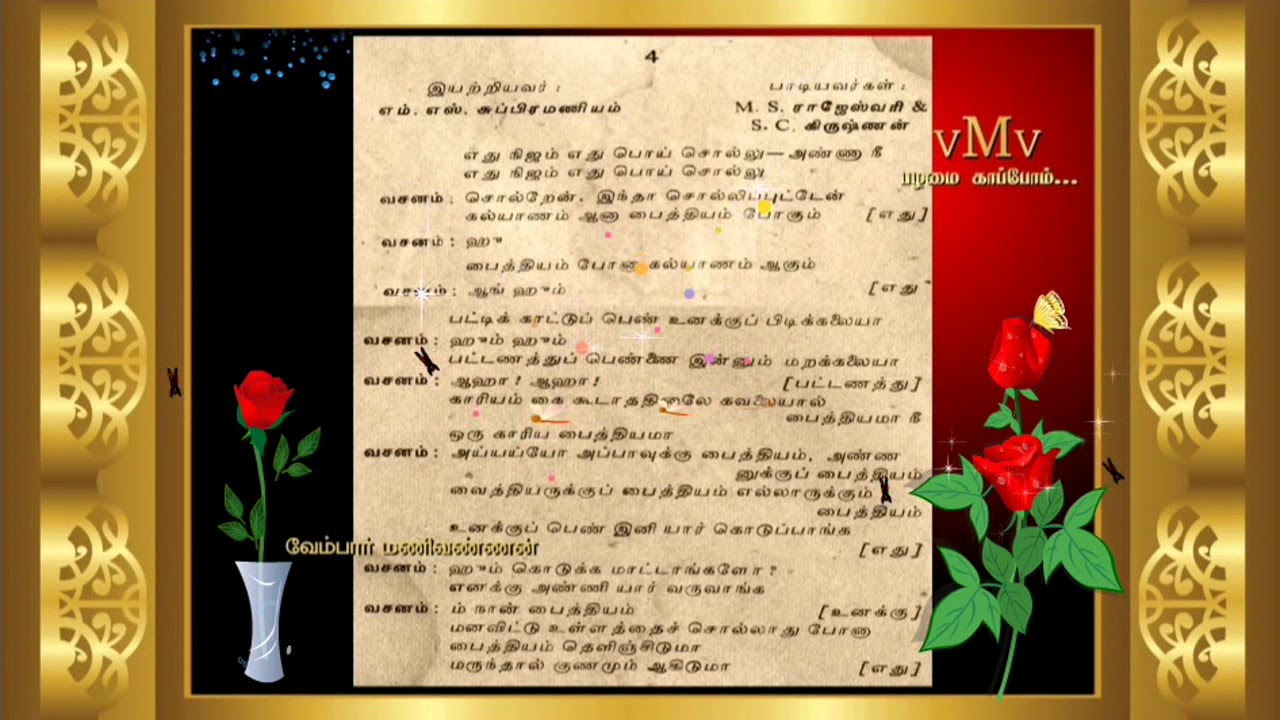 4
இயற்றியவர் :
எம். எஸ். சுப்பிரமணியம்
பாடியவர்கள் :
M. S. ராஜேஸ்வரி &
S. C. கிருஷ்ணன்
எது நிஜம் எது பொய் சொல்லு—அண்ணா நீ
எது நிஜம் எது பொய் சொல்லு
வசனம் : சொல்றேன். இந்தா சொல்லிப்புட்டேன்
கல்யாணம் ஆனா பைத்தியம் போகும் [எது]
வசனம் : ஹூ
பைத்தியம் போனா கல்யாணம் ஆகும்
வசனம் : ஆங் ஹூம் [எது
பட்டிக் காட்டுப் பெண் உனக்குப் பிடிக்கலையா
வசனம் : ஹூம் ஹூம்
பட்டணத்துப் பெண்ணை இன்னும் மறக்கலையா
வசனம் : ஆஹா! ஆஹா! [பட்டணத்து]
காரியம் கை கூடாததினாலே கவலையால்
பைத்தியமா நீ
ஒரு காரிய பைத்தியமா
வசனம் : அய்யய்யோ அப்பாவுக்கு பைத்தியம், அண்ண
னுக்குப் பைத்தியம்
வைத்தியருக்குப் பைத்தியம் எல்லாருக்கும்
பைத்தியம்
உனக்குப் பெண் இனி யார் கொடுப்பாங்க
[எது]
வசனம் : ஹூம் கொடுக்க மாட்டாங்களோ?
எனக்கு அண்ணி யார் வருவாங்க
வசனம் : ம் நான் பைத்தியம் [உனக்கு]
மனவிட்டு உள்ளத்தைச் சொல்லாது போனா
பைத்தியம் தெளிஞ்சிடுமா
மருந்தால் குணமும் ஆகிடுமா [எது]
vMv
பழமை காப்போம்...
வேம்பார் மணிவண்ணன்